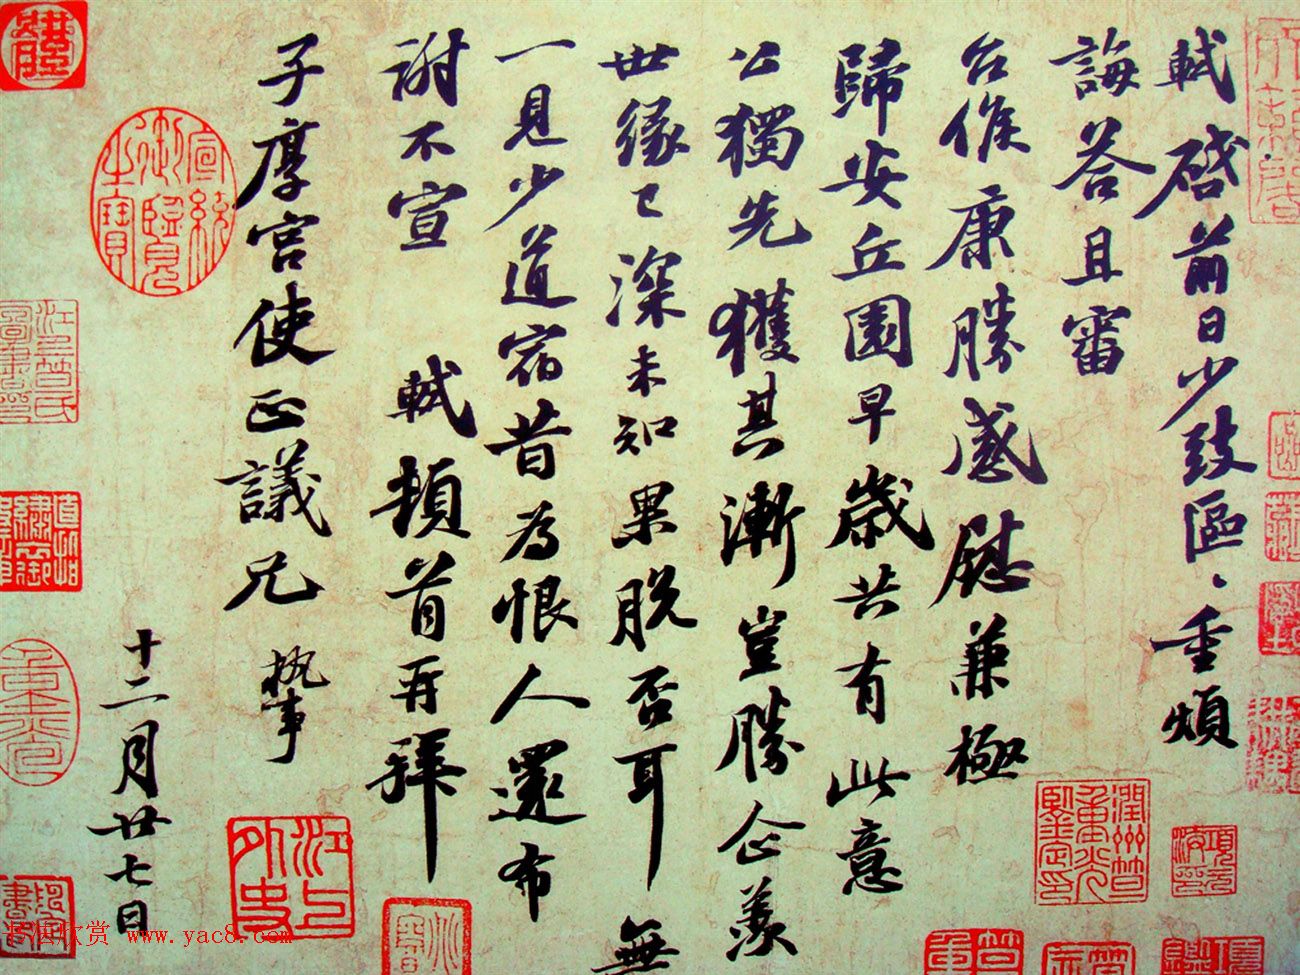 軾啓前日少致區、重煩
誨答且審
台候康勝感慰兼極
歸安丘園早歲共有此意
公獨先獲其漸豈勝企羨
世緣已深未知果脫否耳無
一見少道宿昔為恨人還布
謝不宣 軾頓首再拜
子厚宮使正議兄執事
十二月廿七日
宣統御覽之寶
江上外史
潤州笪重光鑒定印
書法欣赏 www.yac8.com